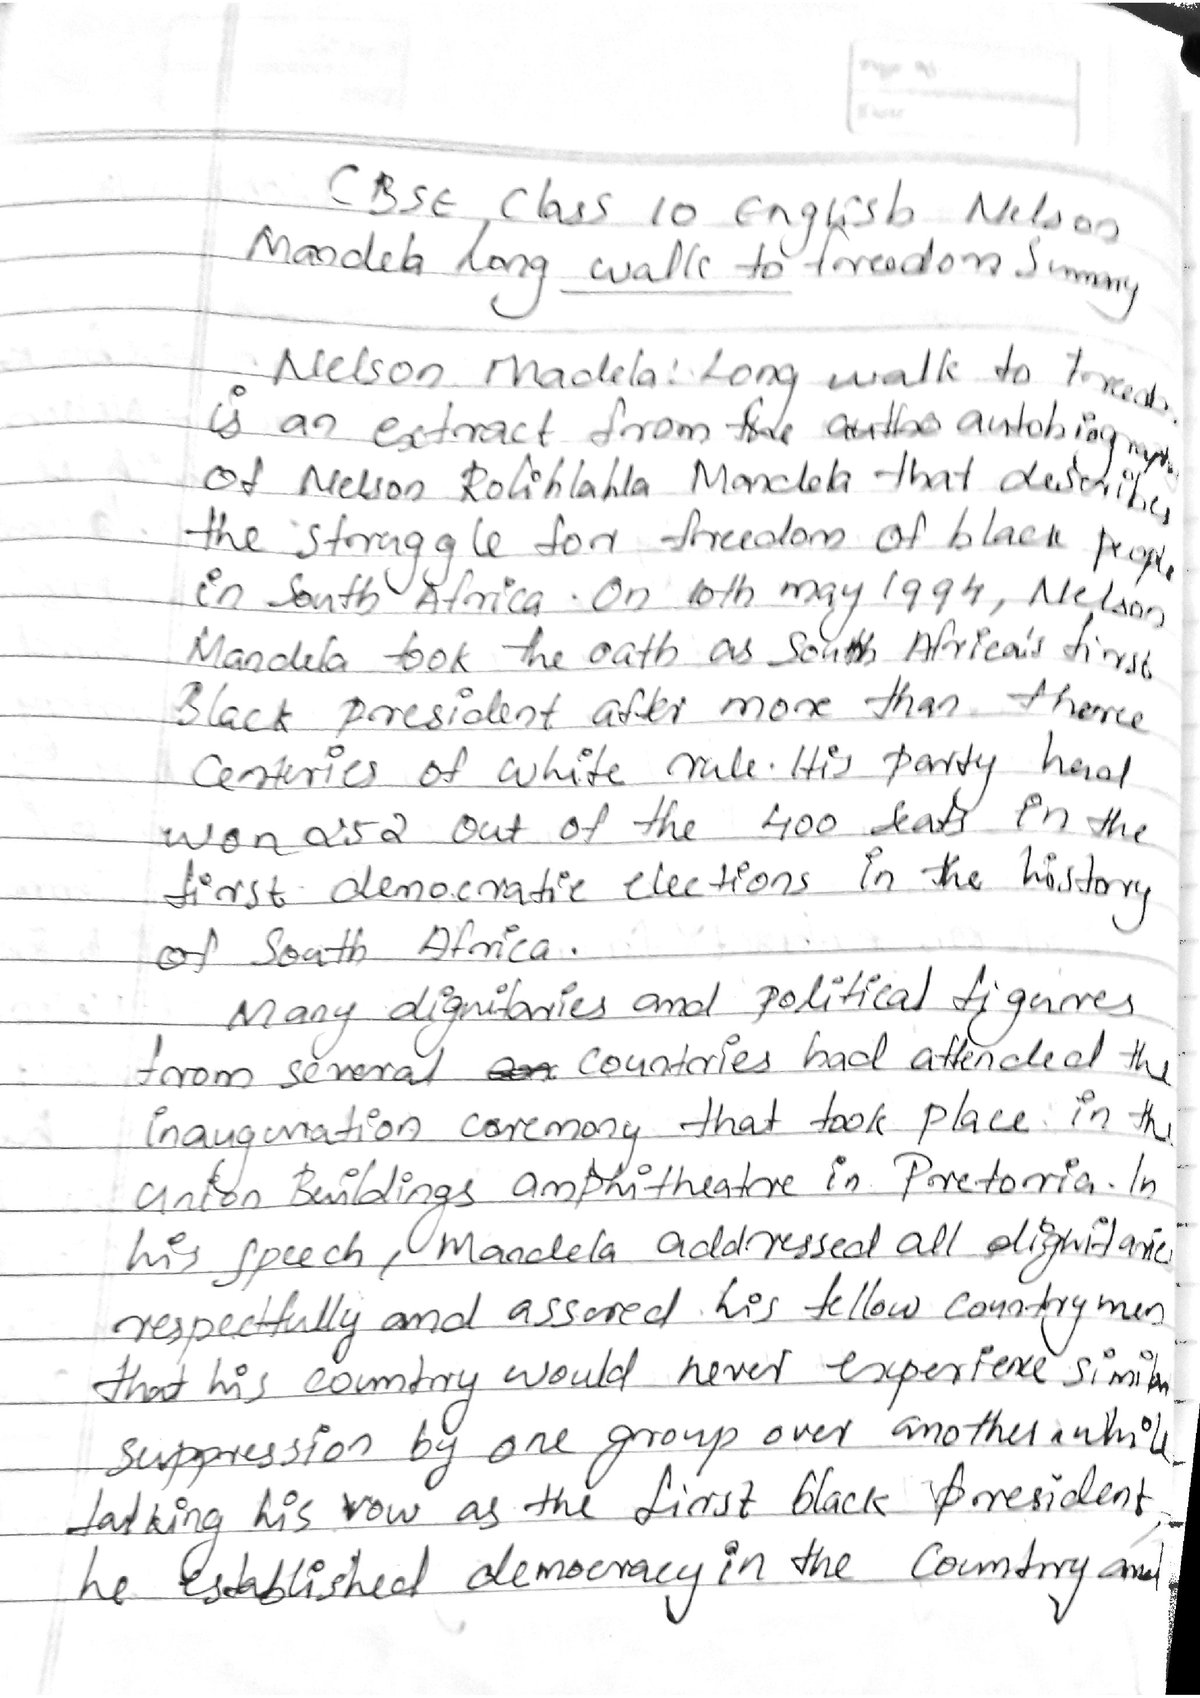 CBSE Class 10 English Nelson
Mandela Long walk to freedom Summary
Nelson Madela: Long walk to freedom
is an extract from the autho autobiography
of Nelson Rolihlahla Mandela that describes
the struggle for freedom of black people
in South Africa. On 10th may 1994, Nelson
Mandela took the oath as South Africa's first
Black president after more than three
Centuries of white rule. His party had
won 252 out of the 400 seats in the
first democratic elections in the history
of South Africa.
Many dignitaries and political figures
from several countries had attended the
inauguration ceremony that took place in the
Union Buildings amphitheatre in Pretoria. In
his speech, Mandela addressed all dignitaries
respectfully and assured his fellow countrymen
that his country would never experience similar
suppression by one group over another. while
talking his vow as the first black president,
he established democracy in the country and